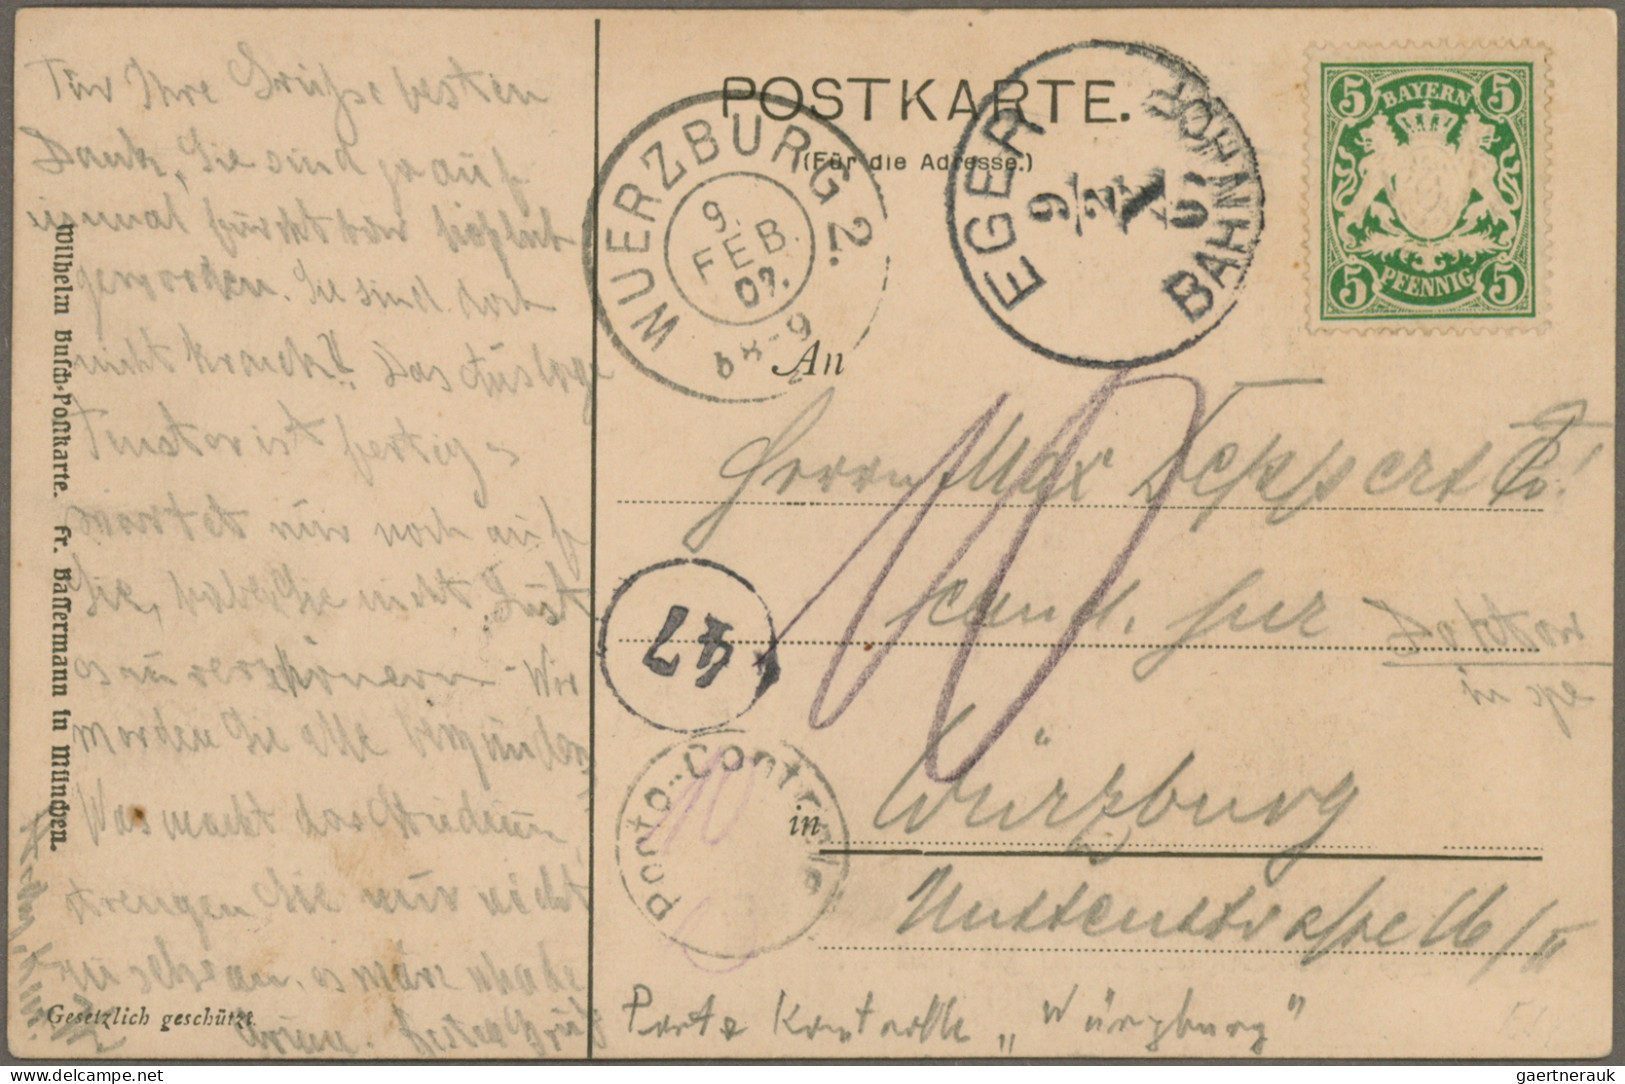 POSTKARTE.
(Für die Adresse.)
WUERZBURG 2.
9.
FEB.
07.
EGER
BAHNHOF
9
2
07
BAYERN
5 5
5 5
PFENNIG
An
Herrn Max Deppert
cand. jur
Doktor
in spe
in
Würzburg
Huttenstrasse 16/II
10
47
Porto-Controlle
Porto Kontrolle „Würzburg"
Für Ihre Grüsse besten
Dank, Sie sind ja auf
einmal furchtbar höflich
geworden. Sie sind doch
nicht krank?! Das Auslage
Fenster ist fertig
wartet nur noch auf
Sie, haben Sie nicht Lust
es zu verschönern - Wir
werden Sie alle bewundern
Was macht das Studium
strengen Sie nur nicht
zu sehr an, es wäre schade
drum. Besten Gruß
Wilhelm Busch-Postkarte. Fr. Bassermann in München.
Gesetzlich geschützt.
gaertnerauk